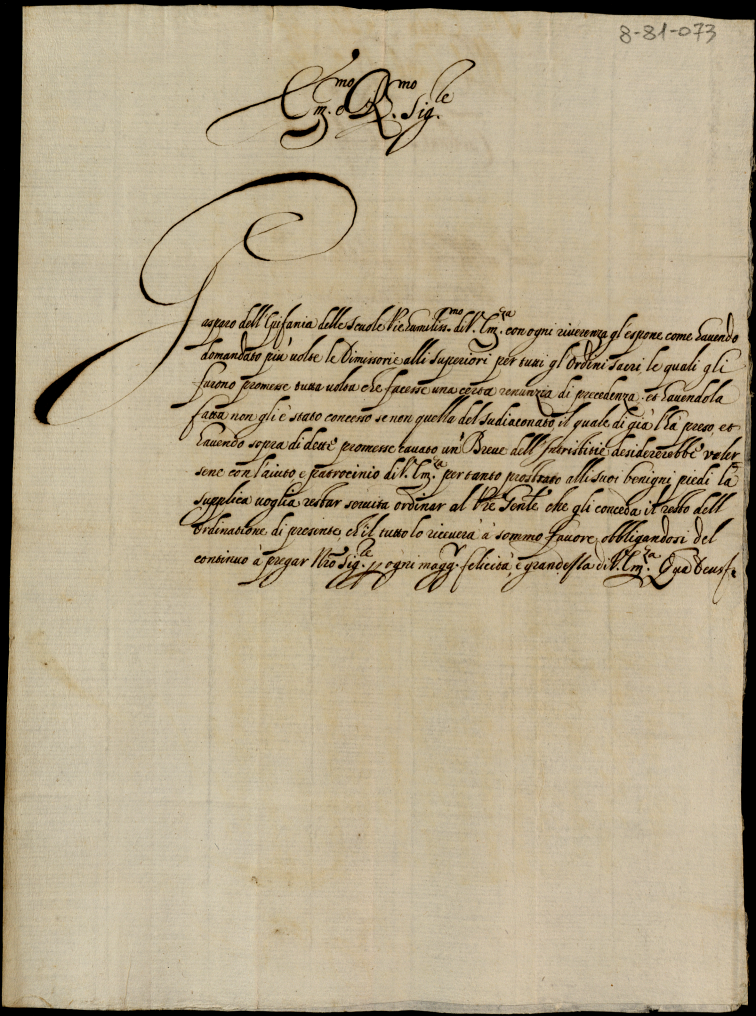 8-81-073
Em.mo e R.mo Sig.le
Gasparo dell'Epifania delle Scuole Pie humiliss.mo di V. Em.za con ogni riverenza gl'espone come havendo
domandato piu' volte le Dimissorie alli superiori per tutti gl'Ordini sacri, le quali gli
furono promesse tutta volta che facesse una certa renunzia di precedenza: et havendola
fatta non gli è stato concesso se non quella del sudiaconato, il quale di già l'hà preso, et
havendo sopra di dette promesse cavato un' Breve dell' desidererebbe valer
sene con l'aiuto e patrocinio di V. Em.za per tanto prostrato alli suoi benigni piedi la
supplica voglia restar servita ordinar al Pre' Gen'le che gli conceda il resto dell'
Ordinatione di presente, ch'il tutto lo riceverà à sommo favore, obbligandosi del
continuo à pregar Nro Sig.le p ogni magg.r felicità e grandezza di V. Em.za Qua Deus